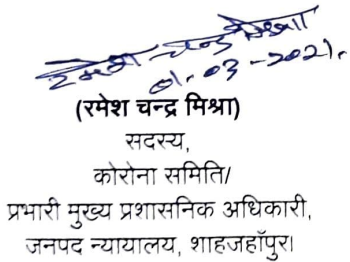 रमेश चन्द्र मिश्रा
01.03-2021.
(रमेश चन्द्र मिश्रा)
सदस्य,
कोरोना समिति/
प्रभारी मुख्य प्रशासनिक अधिकारी,
जनपद न्यायालय, शाहजहॉपुर।